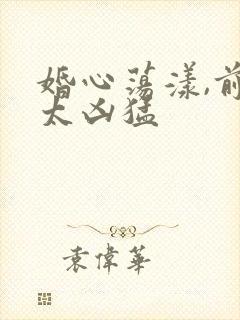 婚心荡漾,前
太凶猛
袁偉華